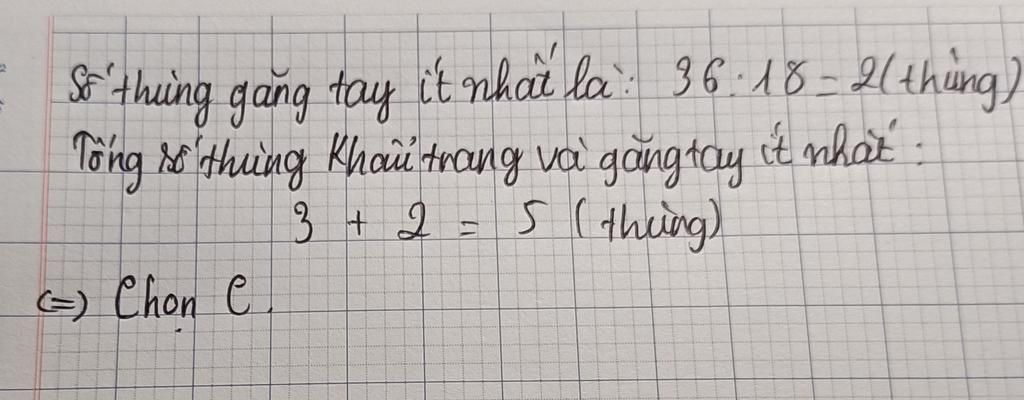 Số thùng găng tay ít nhất là: 36 : 18 = 2 (thùng)
Tổng số thùng khẩu trang và găng tay ít nhất :
3 + 2 = 5 (thùng)
<=> Chọn C.